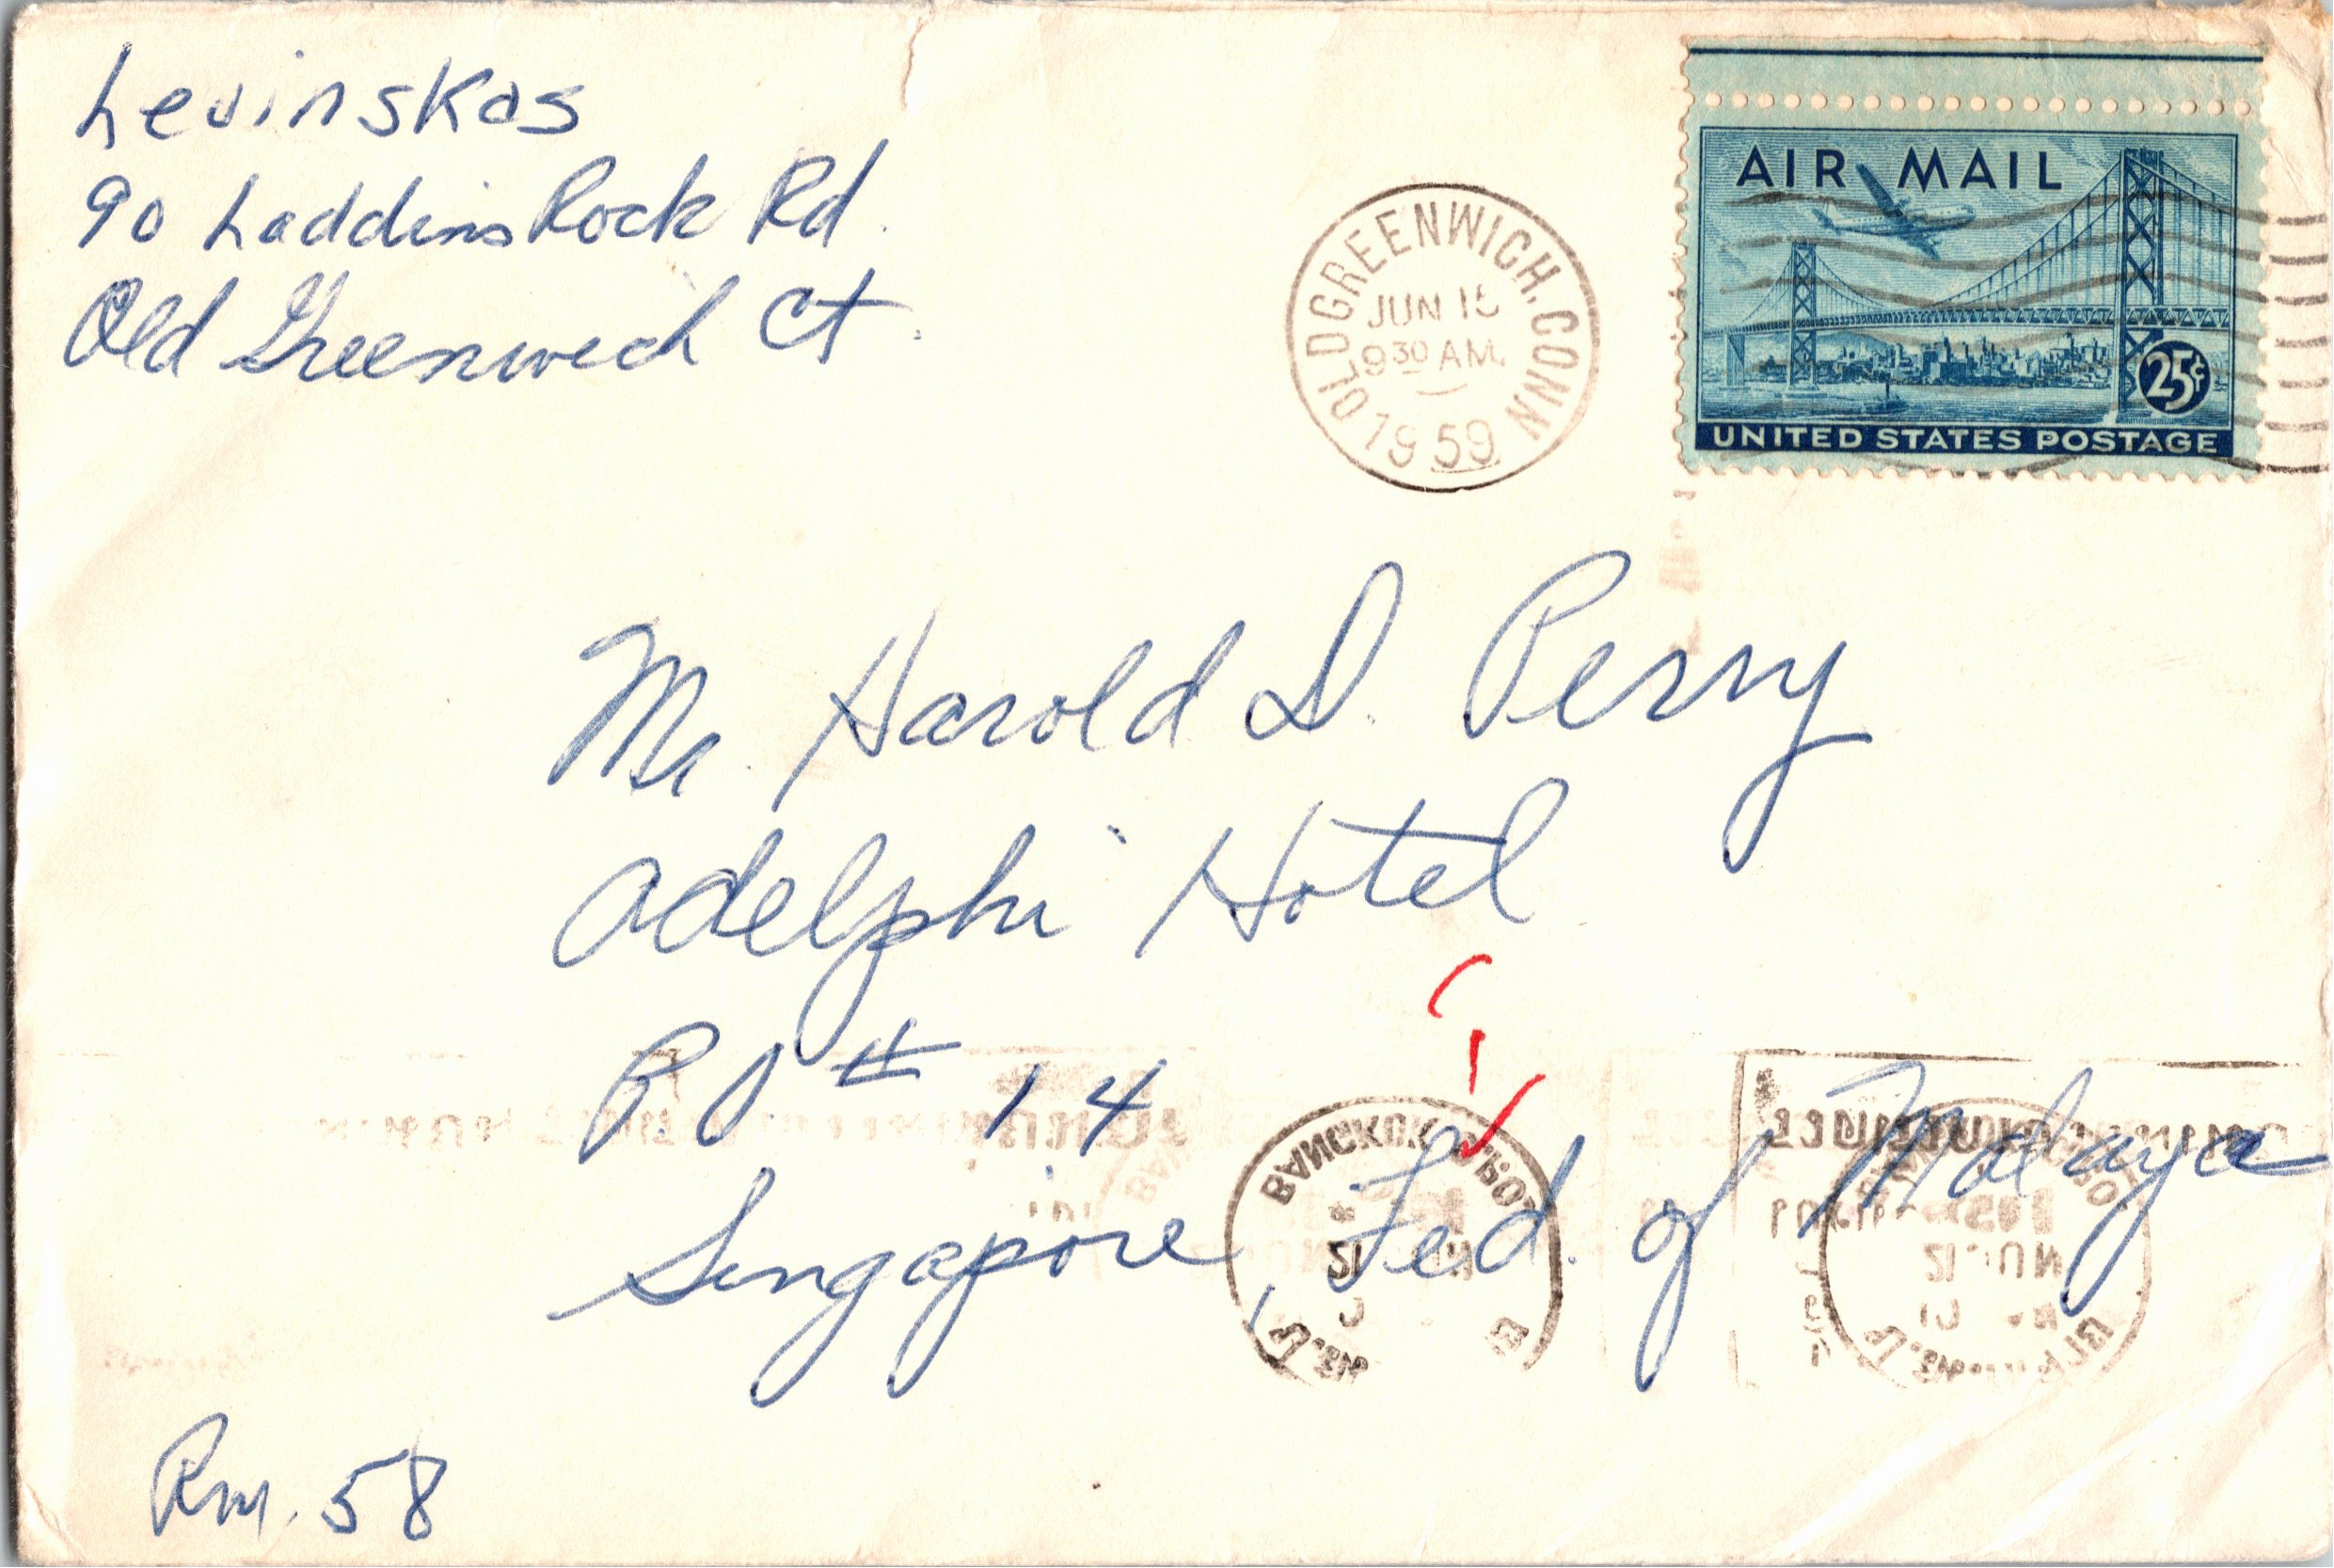 Levinskas
90 Laddins Rock Rd.
Old Greenwich Ct.
OLD GREENWICH. CONN
JUN 15
9 30 AM.
1959
AIR MAIL
25¢
UNITED STATES POSTAGE
Mr. Harold D. Perry
Adelphi Hotel
P.O # 14
Singapore, Fed. of Malaya
BANGKOK G.P.O.
Rm. 58